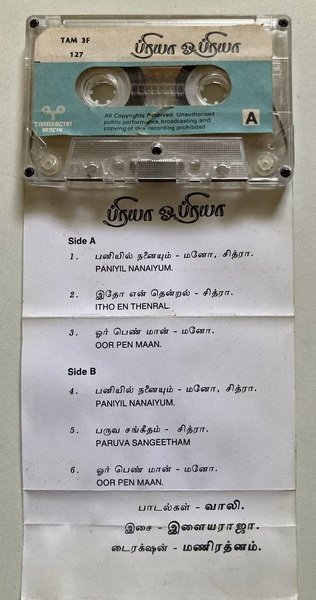 TAM 3F
127
ப்ரியா ஓ ப்ரியா
THARANGINI
All Copyrights Reserved. Unauthorised
public performance, broadcasting and
copying of this recording prohibited
A
ப்ரியா ஓ ப்ரியா
Side A
1. பனியில் நனையும் - மனோ, சித்ரா.
PANIYIL NANAIYUM.
2. இதோ என் தென்றல் - சித்ரா.
ITHO EN THENRAL.
3. ஓர் பெண் மான் - மனோ.
OOR PEN MAAN.
Side B
4. பனியில் நனையும் - மனோ, சித்ரா.
PANIYIL NANAIYUM.
5. பருவ சங்கீதம் - சித்ரா.
PARUVA SANGEETHAM
6. ஓர் பெண் மான் - மனோ.
OOR PEN MAAN.
பாடல்கள் - வாலி.
இசை - இளையராஜா.
டைரக்ஷன் - மணிரத்னம்.